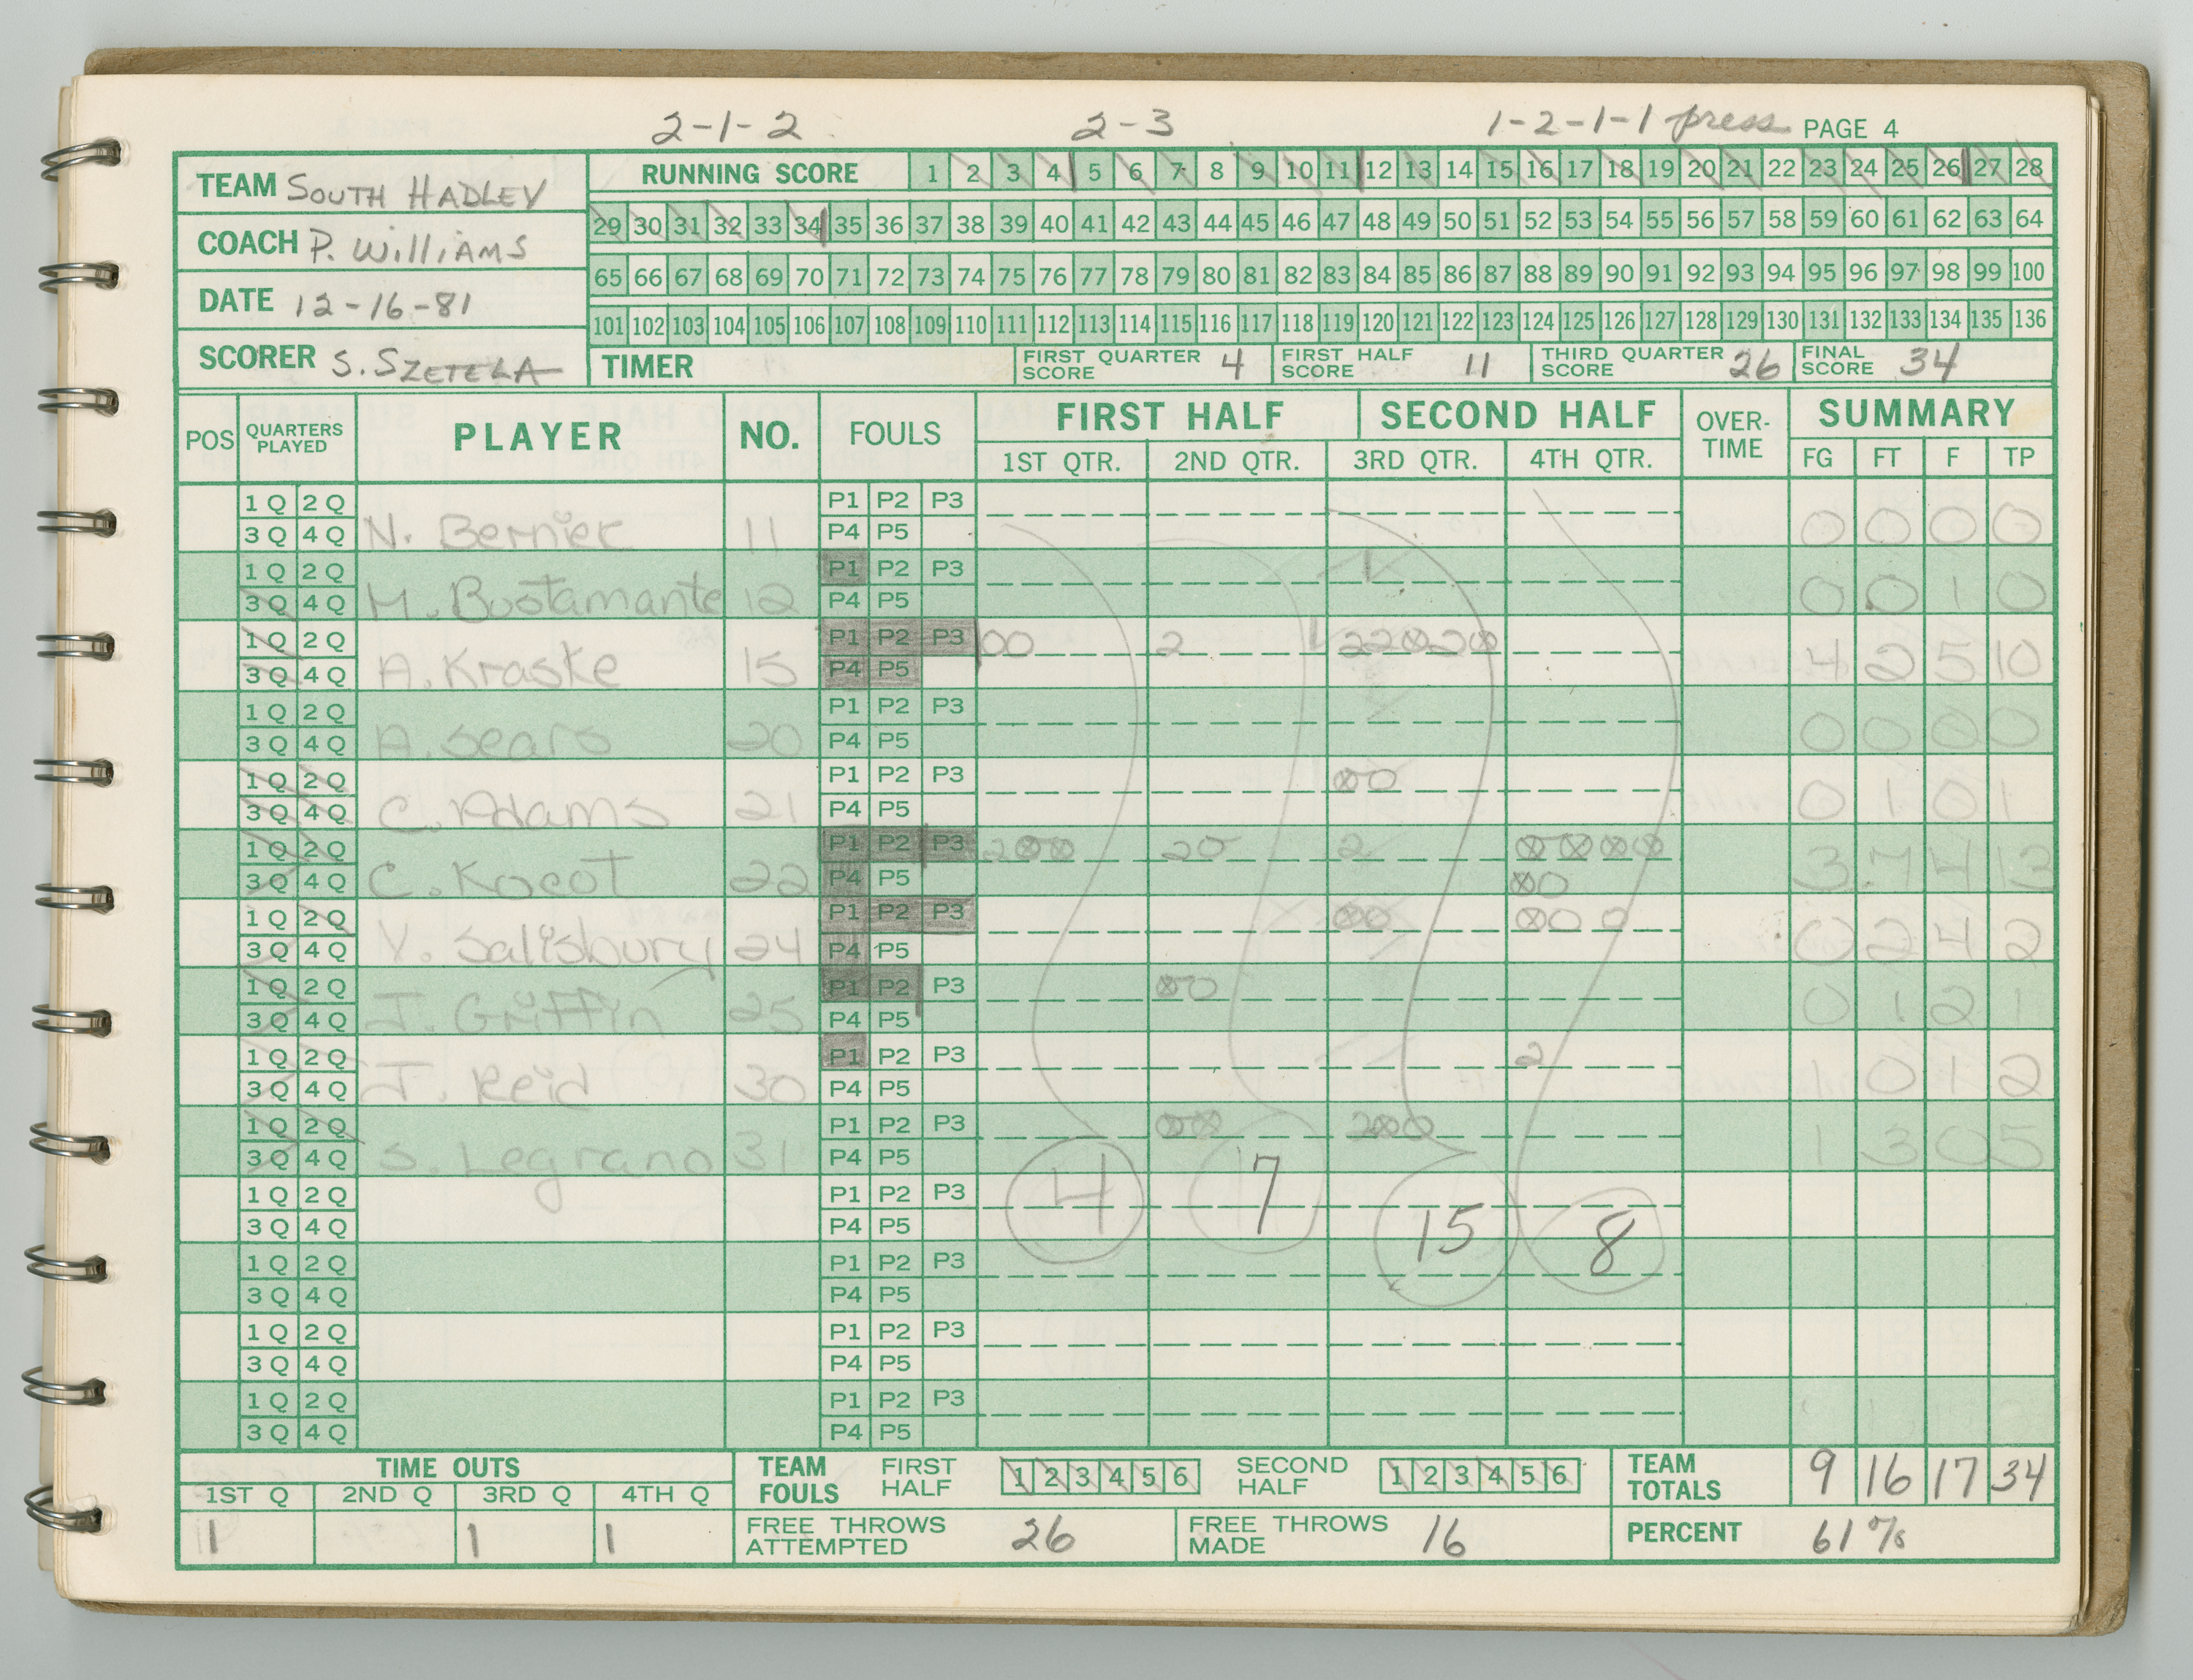 2-1-2 2-3 1-2-1-1 press PAGE 4
TEAM SOUTH HADLEY
COACH P. WILLIAMS
DATE 12-16-81
SCORER S. SZETELA
RUNNING SCORE 1 2 3 4 5 6 7 8 9 10 11 12 13 14 15 16 17 18 19 20 21 22 23 24 25 26 27 28
29 30 31 32 33 34 35 36 37 38 39 40 41 42 43 44 45 46 47 48 49 50 51 52 53 54 55 56 57 58 59 60 61 62 63 64
65 66 67 68 69 70 71 72 73 74 75 76 77 78 79 80 81 82 83 84 85 86 87 88 89 90 91 92 93 94 95 96 97 98 99 100
101 102 103 104 105 106 107 108 109 110 111 112 113 114 115 116 117 118 119 120 121 122 123 124 125 126 127 128 129 130 131 132 133 134 135 136
TIMER FIRST QUARTER SCORE 4 FIRST HALF SCORE 11 THIRD QUARTER SCORE 26 FINAL SCORE 34
POS QUARTERS PLAYED PLAYER NO. FOULS FIRST HALF SECOND HALF OVER-TIME SUMMARY
1ST QTR. 2ND QTR. 3RD QTR. 4TH QTR. FG FT F TP
1Q 2Q P1 P2 P3
3Q 4Q N. Bernier 11 P4 P5 0 0 0 0
1Q 2Q P1 P2 P3
3Q 4Q M. Bustamante 12 P4 P5 0 0 1 0
1Q 2Q P1 P2 P3 00 2 220020
3Q 4Q A. Kraske 15 P4 P5 4 2 5 10
1Q 2Q P1 P2 P3
3Q 4Q A. Sears 20 P4 P5 0 0 0 0
1Q 2Q P1 P2 P3 00
3Q 4Q C. Adams 21 P4 P5 0 1 0 1
1Q 2Q P1 P2 P3 200 20 2 0000
3Q 4Q C. Kocot 22 P4 P5 00 3 7 4 13
1Q 2Q P1 P2 P3 00 000
3Q 4Q V. Salisbury 24 P4 P5 0 2 4 2
1Q 2Q P1 P2 P3 00
3Q 4Q J. Griffin 25 P4 P5 0 1 2 1
1Q 2Q P1 P2 P3 2
3Q 4Q J. Reid 30 P4 P5 1 0 1 2
1Q 2Q P1 P2 P3 00 200
3Q 4Q S. Legrano 31 P4 P5 1 3 0 5
1Q 2Q P1 P2 P3
3Q 4Q P4 P5 4 7 15 8
1Q 2Q P1 P2 P3
3Q 4Q P4 P5
1Q 2Q P1 P2 P3
3Q 4Q P4 P5
1Q 2Q P1 P2 P3
3Q 4Q P4 P5
TIME OUTS
1ST Q 2ND Q 3RD Q 4TH Q
1 1 1
TEAM FOULS FIRST HALF 1 2 3 4 5 6 SECOND HALF 1 2 3 4 5 6
TEAM TOTALS 9 16 17 34
FREE THROWS ATTEMPTED 26 FREE THROWS MADE 16
PERCENT 61%